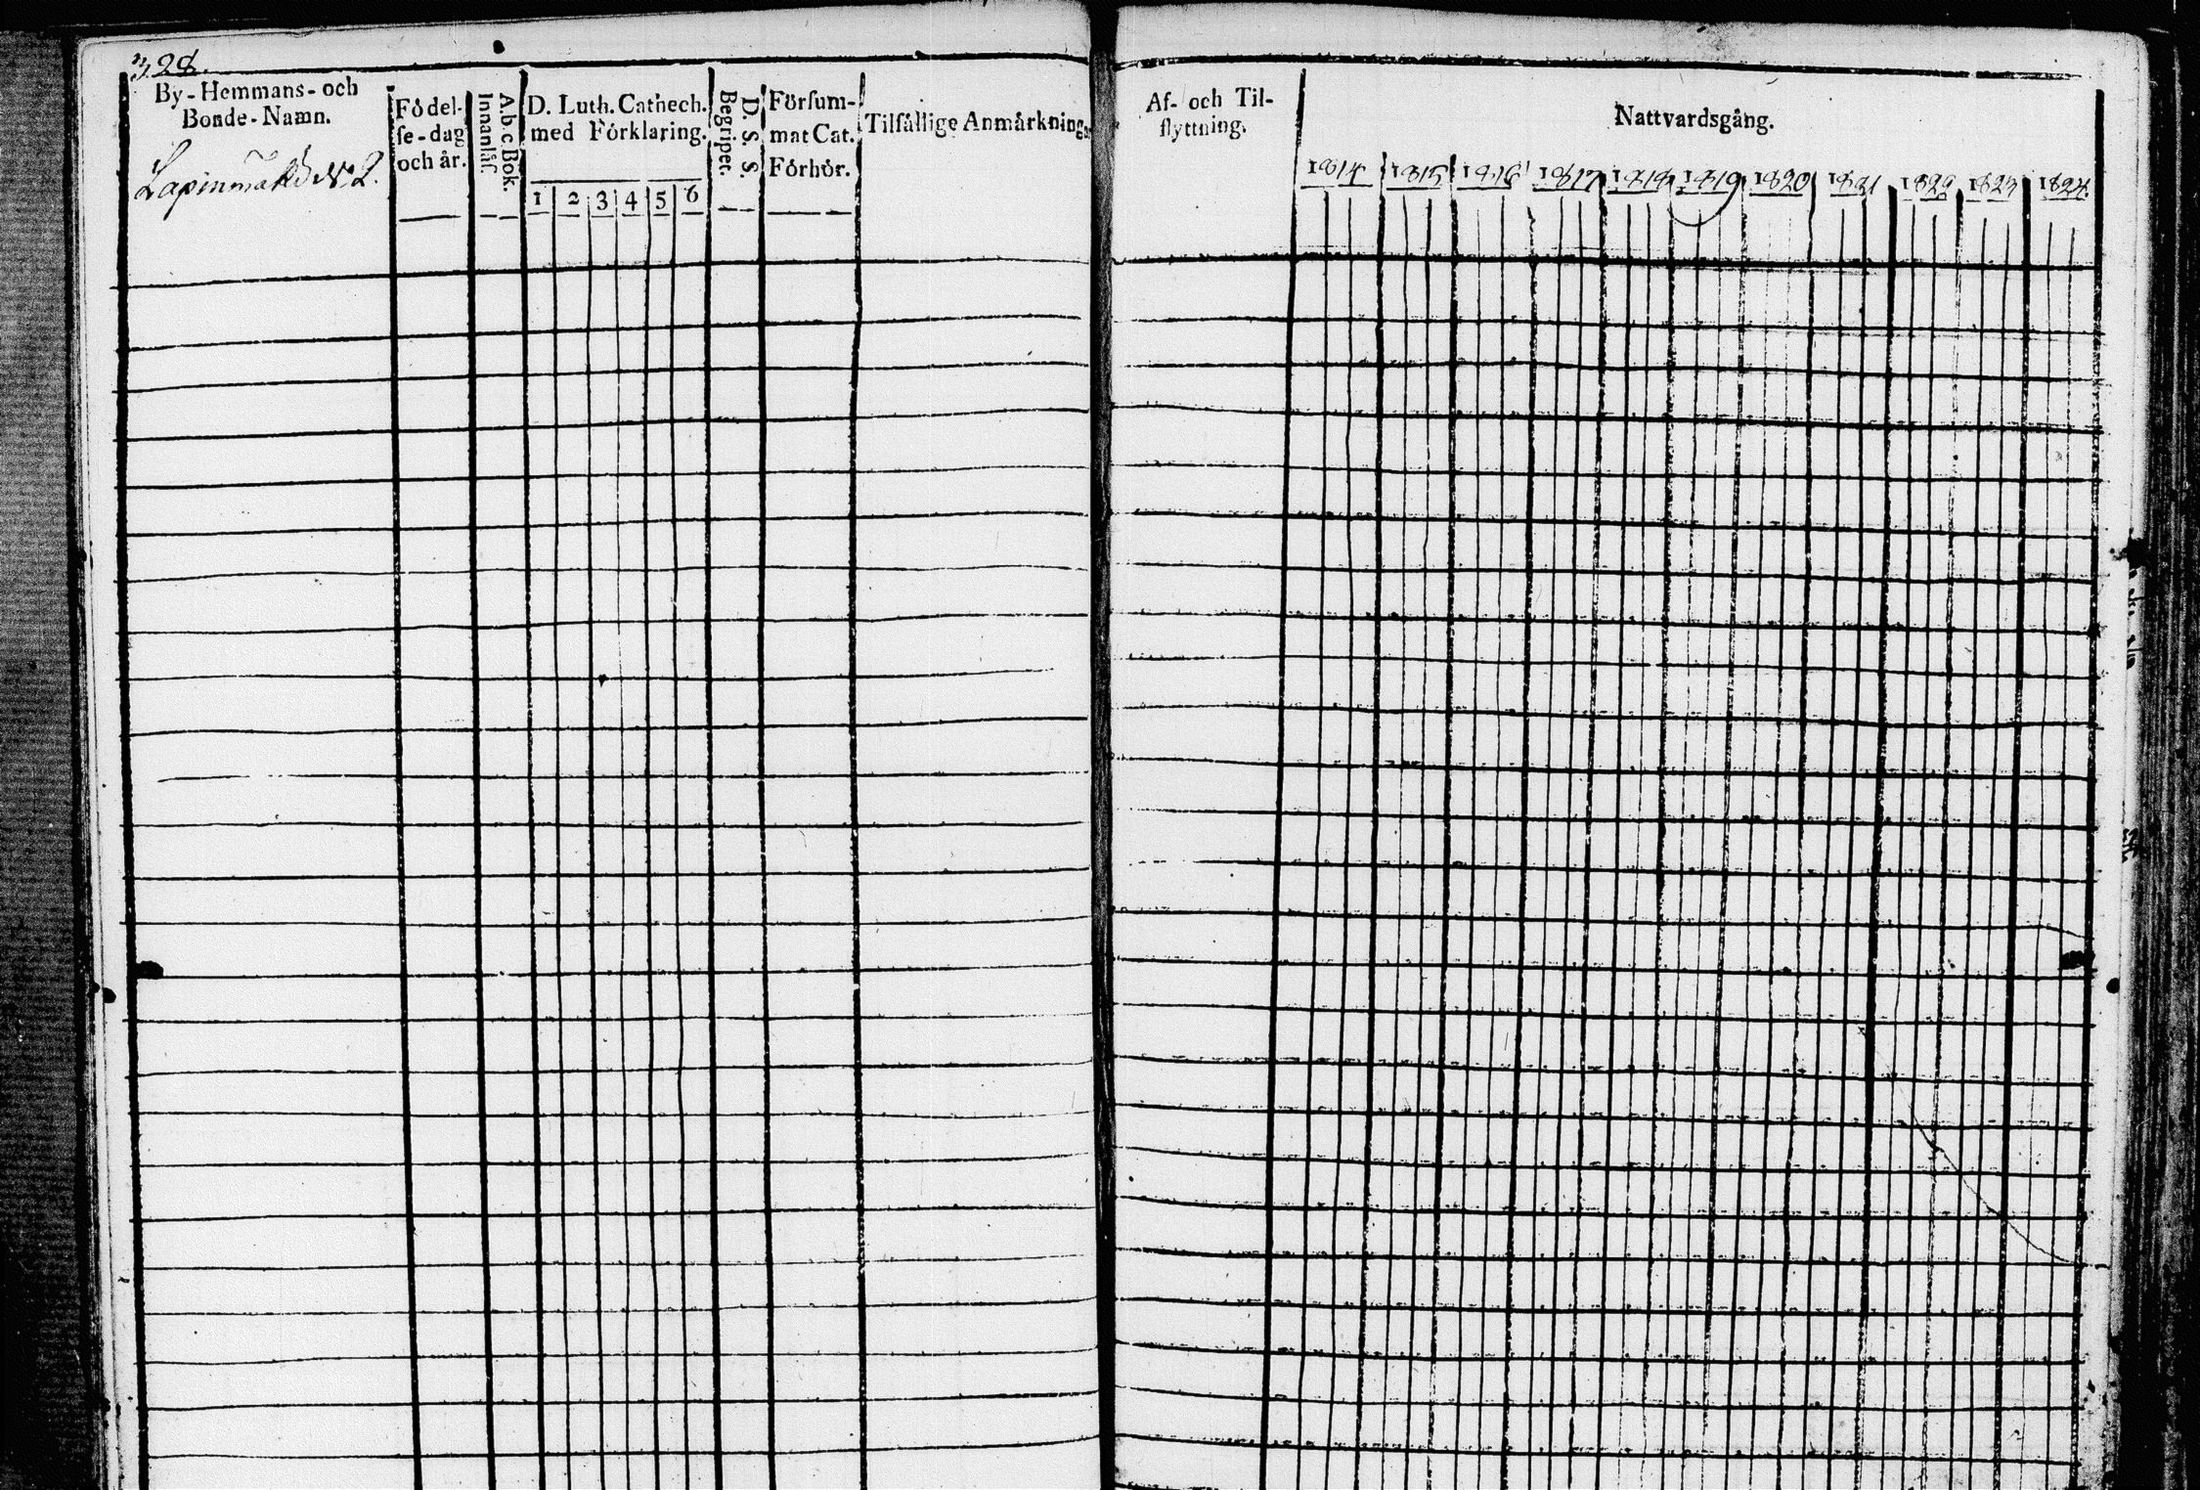 328.
By-Hemmans- och
Bonde-Namn.
Lapinmäki N 2.
Födel-
se-dag
och år.
Abc Bok.
Innanläs.
D. Luth. Cathech.
med Förklaring.
1 2 3 4 5 6
D. S. S.
Begriper.
Försum-
mat Cat.
Förhör.
Tilfällige Anmärkning.
Af- och Til-
flyttning.
Nattvardsgång.
1814 1815 1816 1817 1818 1819 1820 1821 1822 1823 1824